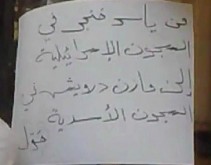 من ياسر فنجري في
السجون الإسرائيلية
إلى مازن درويش في
السجون الأسدية